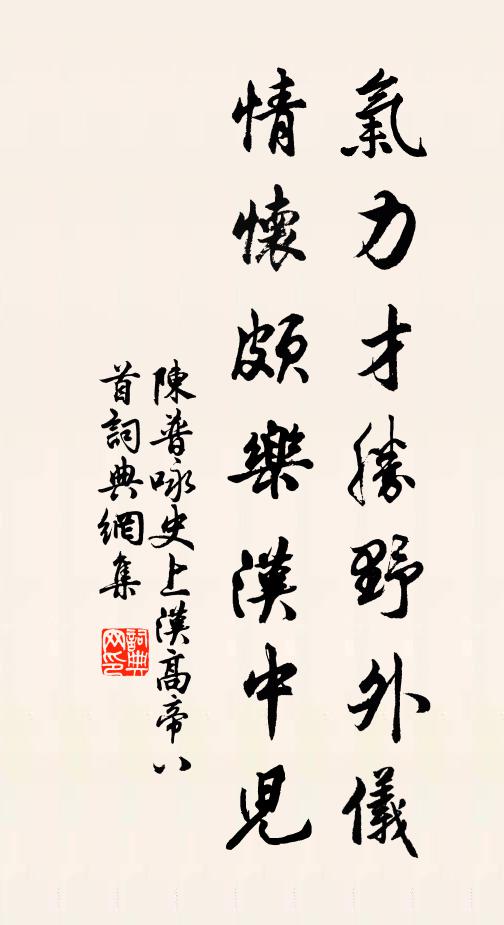 氣力才勝野外儀
情懷頗樂漢中兒
陳普咏史上漢高帝八
首詞典網集
詞典网印